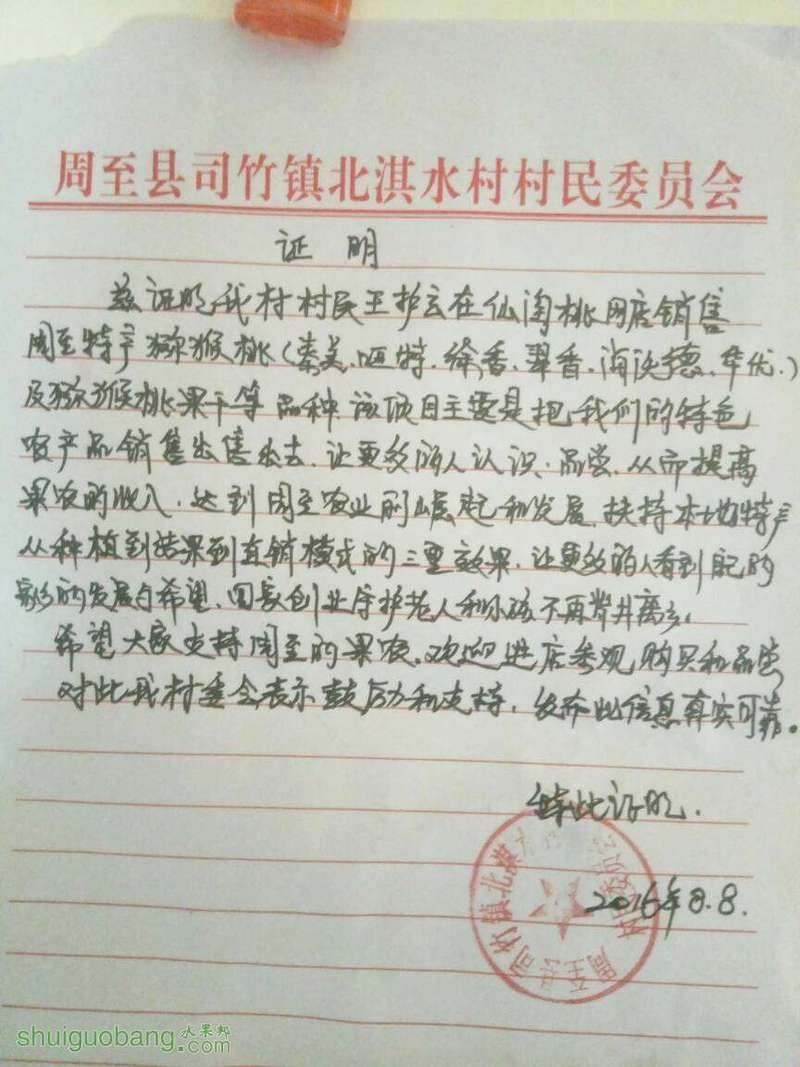 周至县司竹镇北淇水村村民委员会
证 明
兹证明我村村民王护云在仙淘桃网店销售
周至特产猕猴桃(秦美.哑特.徐香.翠香.海沃德.华优.)
及猕猴桃果干等品种.该项目主要是把我们的特色
农产品销售出售出去.让更多的人认识.品尝.从而提高
果农的收入.达到周至农业的崛起和发展.扶持本地特产
从种植到结果到直销模式的三重效果.让更多的人看到自己的
家乡的发展与希望.回家创业守护老人和小孩不再背井离乡.
希望大家支持周至的果农.欢迎进店参观购买和品尝
对此我村委会表示鼓励和支持,发布此信息真实可靠。
特此证明.
2016年8.8.
周至县司竹镇北淇水村村民委员会
shuiguobang.com
水果邦